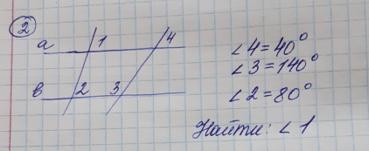 ②
a 1 4
в 2 3
∠4=40°
∠3=140°
∠2=80°
Найти: ∠1